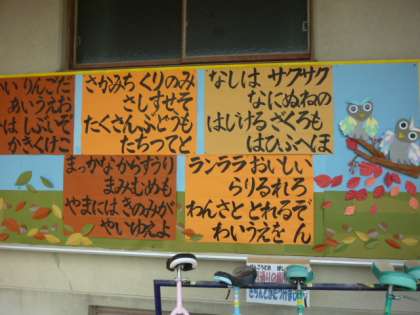 い りんごだ
あいうえお
は しぶいぞ
かきくけこ
さかみち くりのみ
さしすせそ
たくさん ぶどうも
たちつてと
なしは サクサク
なにぬねの
はじける ざくろも
はひふへほ
まっかな からすうり
まみむめも
やまには きのみが
やいゆえよ
ランララ おいしい
らりるれろ
わんさと とれるぞ
わいうえを ん